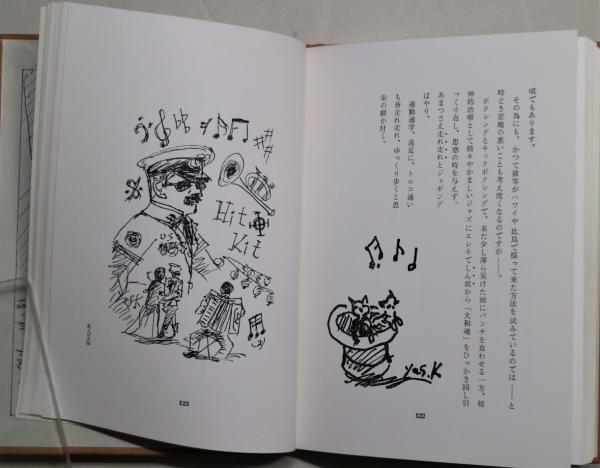 頃でもあります。
その為にも、かつて彼等がハワイや比島で採って来た方法を試みているのでは……と
時どき意地の悪いことも考え度くなるのですが……。
ボクシングとキックボクシングで、未だ少し薄ら呆けた頭にパンチを食わせる一方、精
神的治療として精々やかましいジャズにエレキでしん底から「大和魂」をひっかき回し引
っくり返し、思惑の時を与えず。
あまつさえ走れ走れとジョギング
ばやり。
通勤通学、遠足に、トルコ通い
も皆走れ走れ、ゆっくり歩くと思
索の癖が付く。
yas.K
122
Hit
Kit
US
123